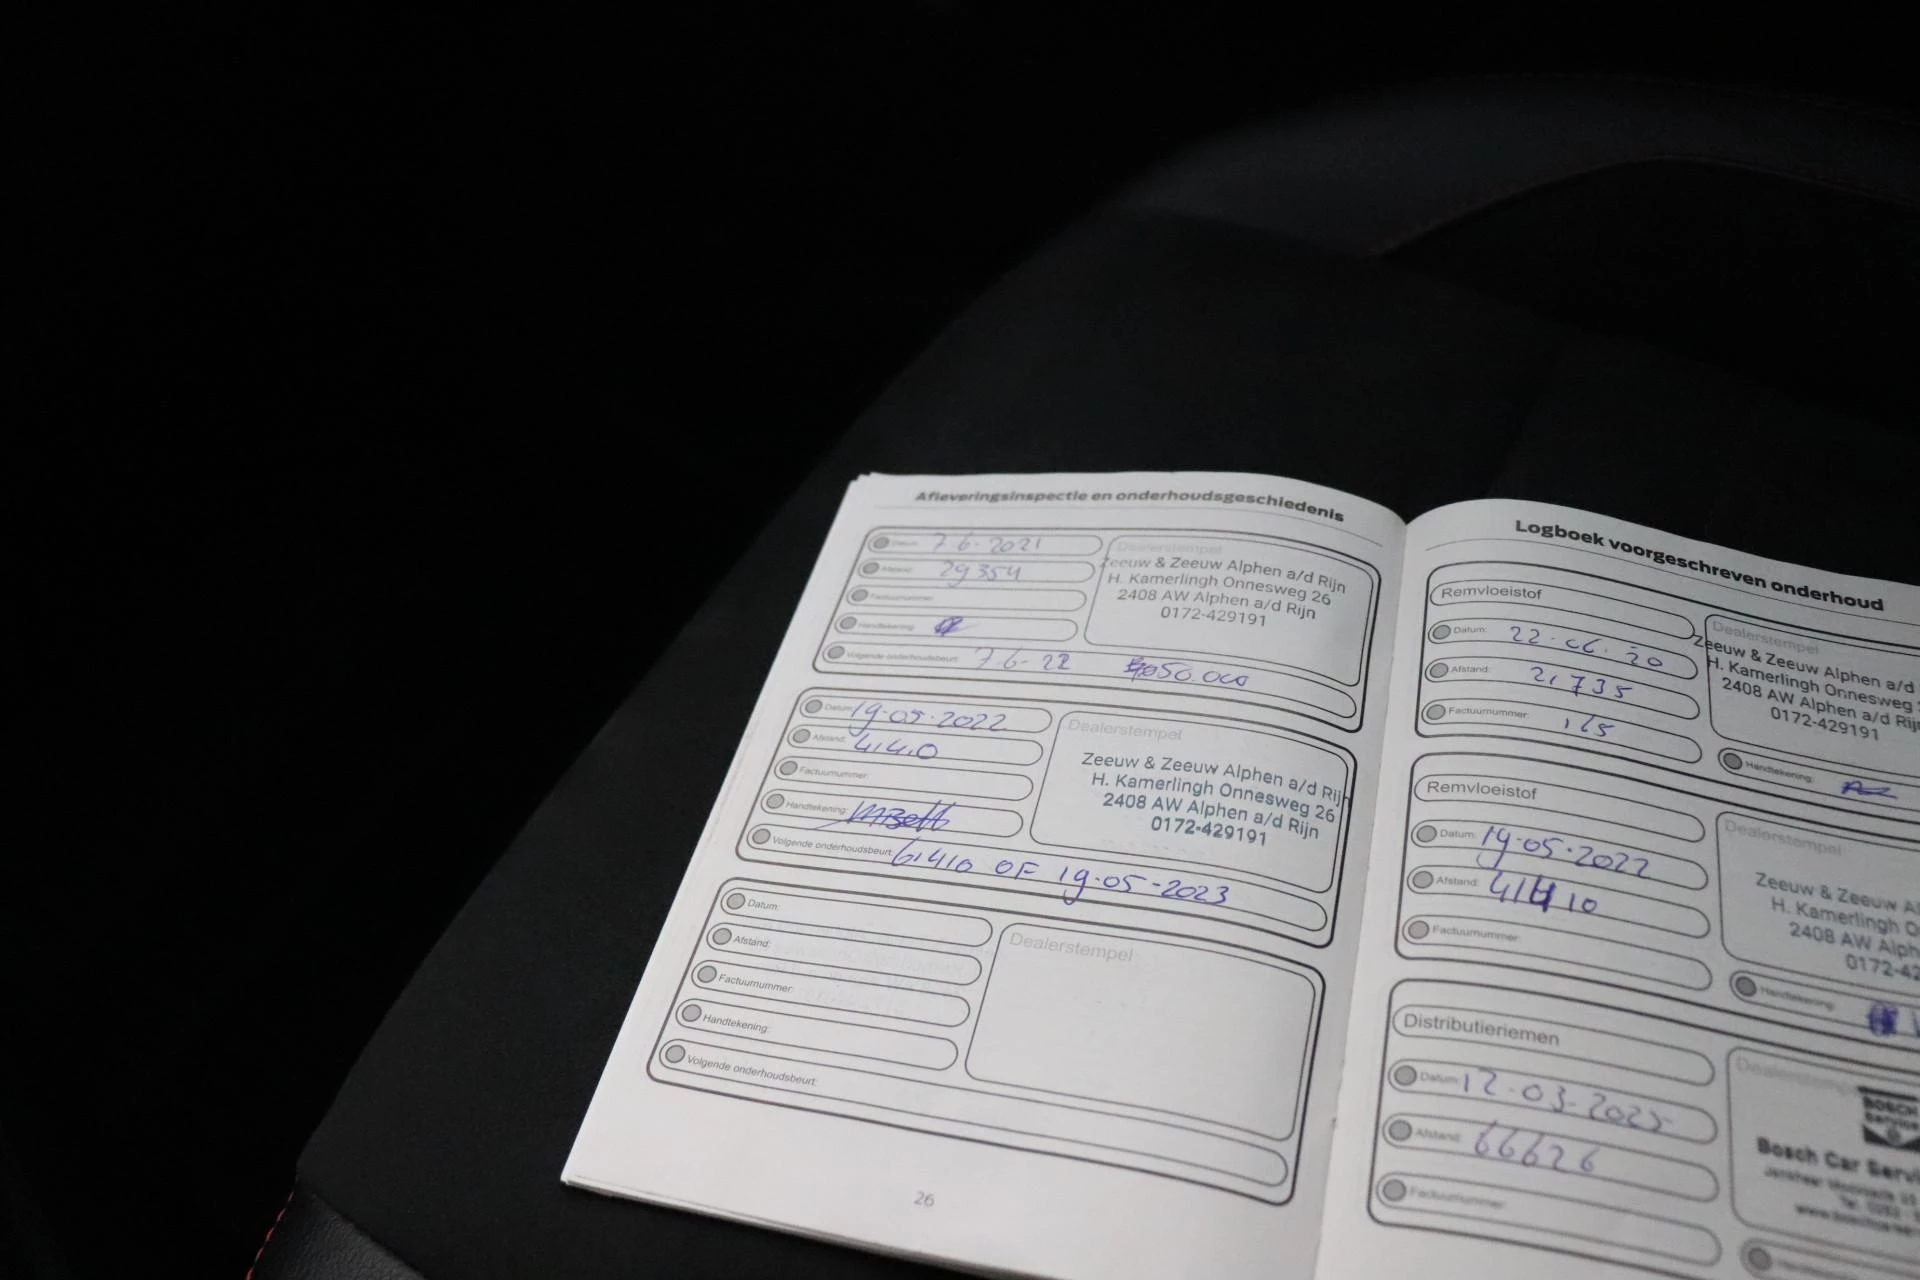 Afleveringsinspectie en onderhoudsgeschiedenis
Datum: 7.6.2021
Afstand: 29354
Factuurnummer:
Handtekening:
Volgende onderhoudsbeurt: 7.6-22 50.000
Dealerstempel
Zeeuw & Zeeuw Alphen a/d Rijn
H. Kamerlingh Onnesweg 26
2408 AW Alphen a/d Rijn
0172-429191
Datum: 19-05-2022
Afstand: 41410
Factuurnummer:
Handtekening:
Volgende onderhoudsbeurt: 61410 OF 19-05-2023
Dealerstempel
Zeeuw & Zeeuw Alphen a/d Rijn
H. Kamerlingh Onnesweg 26
2408 AW Alphen a/d Rijn
0172-429191
Datum:
Afstand:
Factuurnummer:
Handtekening:
Volgende onderhoudsbeurt:
Dealerstempel
26
Logboek voorgeschreven onderhoud
Remvloeistof
Datum: 22-06-20
Afstand: 21735
Factuurnummer:
Dealerstempel
Zeeuw & Zeeuw Alphen a/d
H. Kamerlingh Onnesweg
2408 AW Alphen a/d Rijn
0172-429191
Handtekening:
Remvloeistof
Datum: 19-05-2022
Afstand: 41410
Factuurnummer:
Dealerstempel
Zeeuw & Zeeuw Al
H. Kamerlingh O
2408 AW Alph
0172-42
Handtekening:
Distributieriemen
Datum: 12-03-2025
Afstand: 66626
Factuurnummer:
Dealerstempel
BOSCH
Service
Bosch Car Servi
Handtekening: